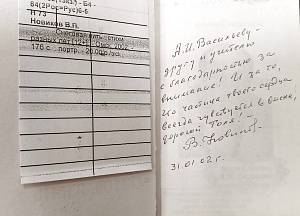 84(2Рос=Рус)6-5
Н 73
Новиков В.П.
176 с. портр. - 20.00 р/уб.
А.И. Васильеву -
другу и учителю
с благодарностью за
внимание! И за то,
что частица твоего сердца
всегда чувствуется в
дорогой Толя!
В. Новиков
31.01.02 г.